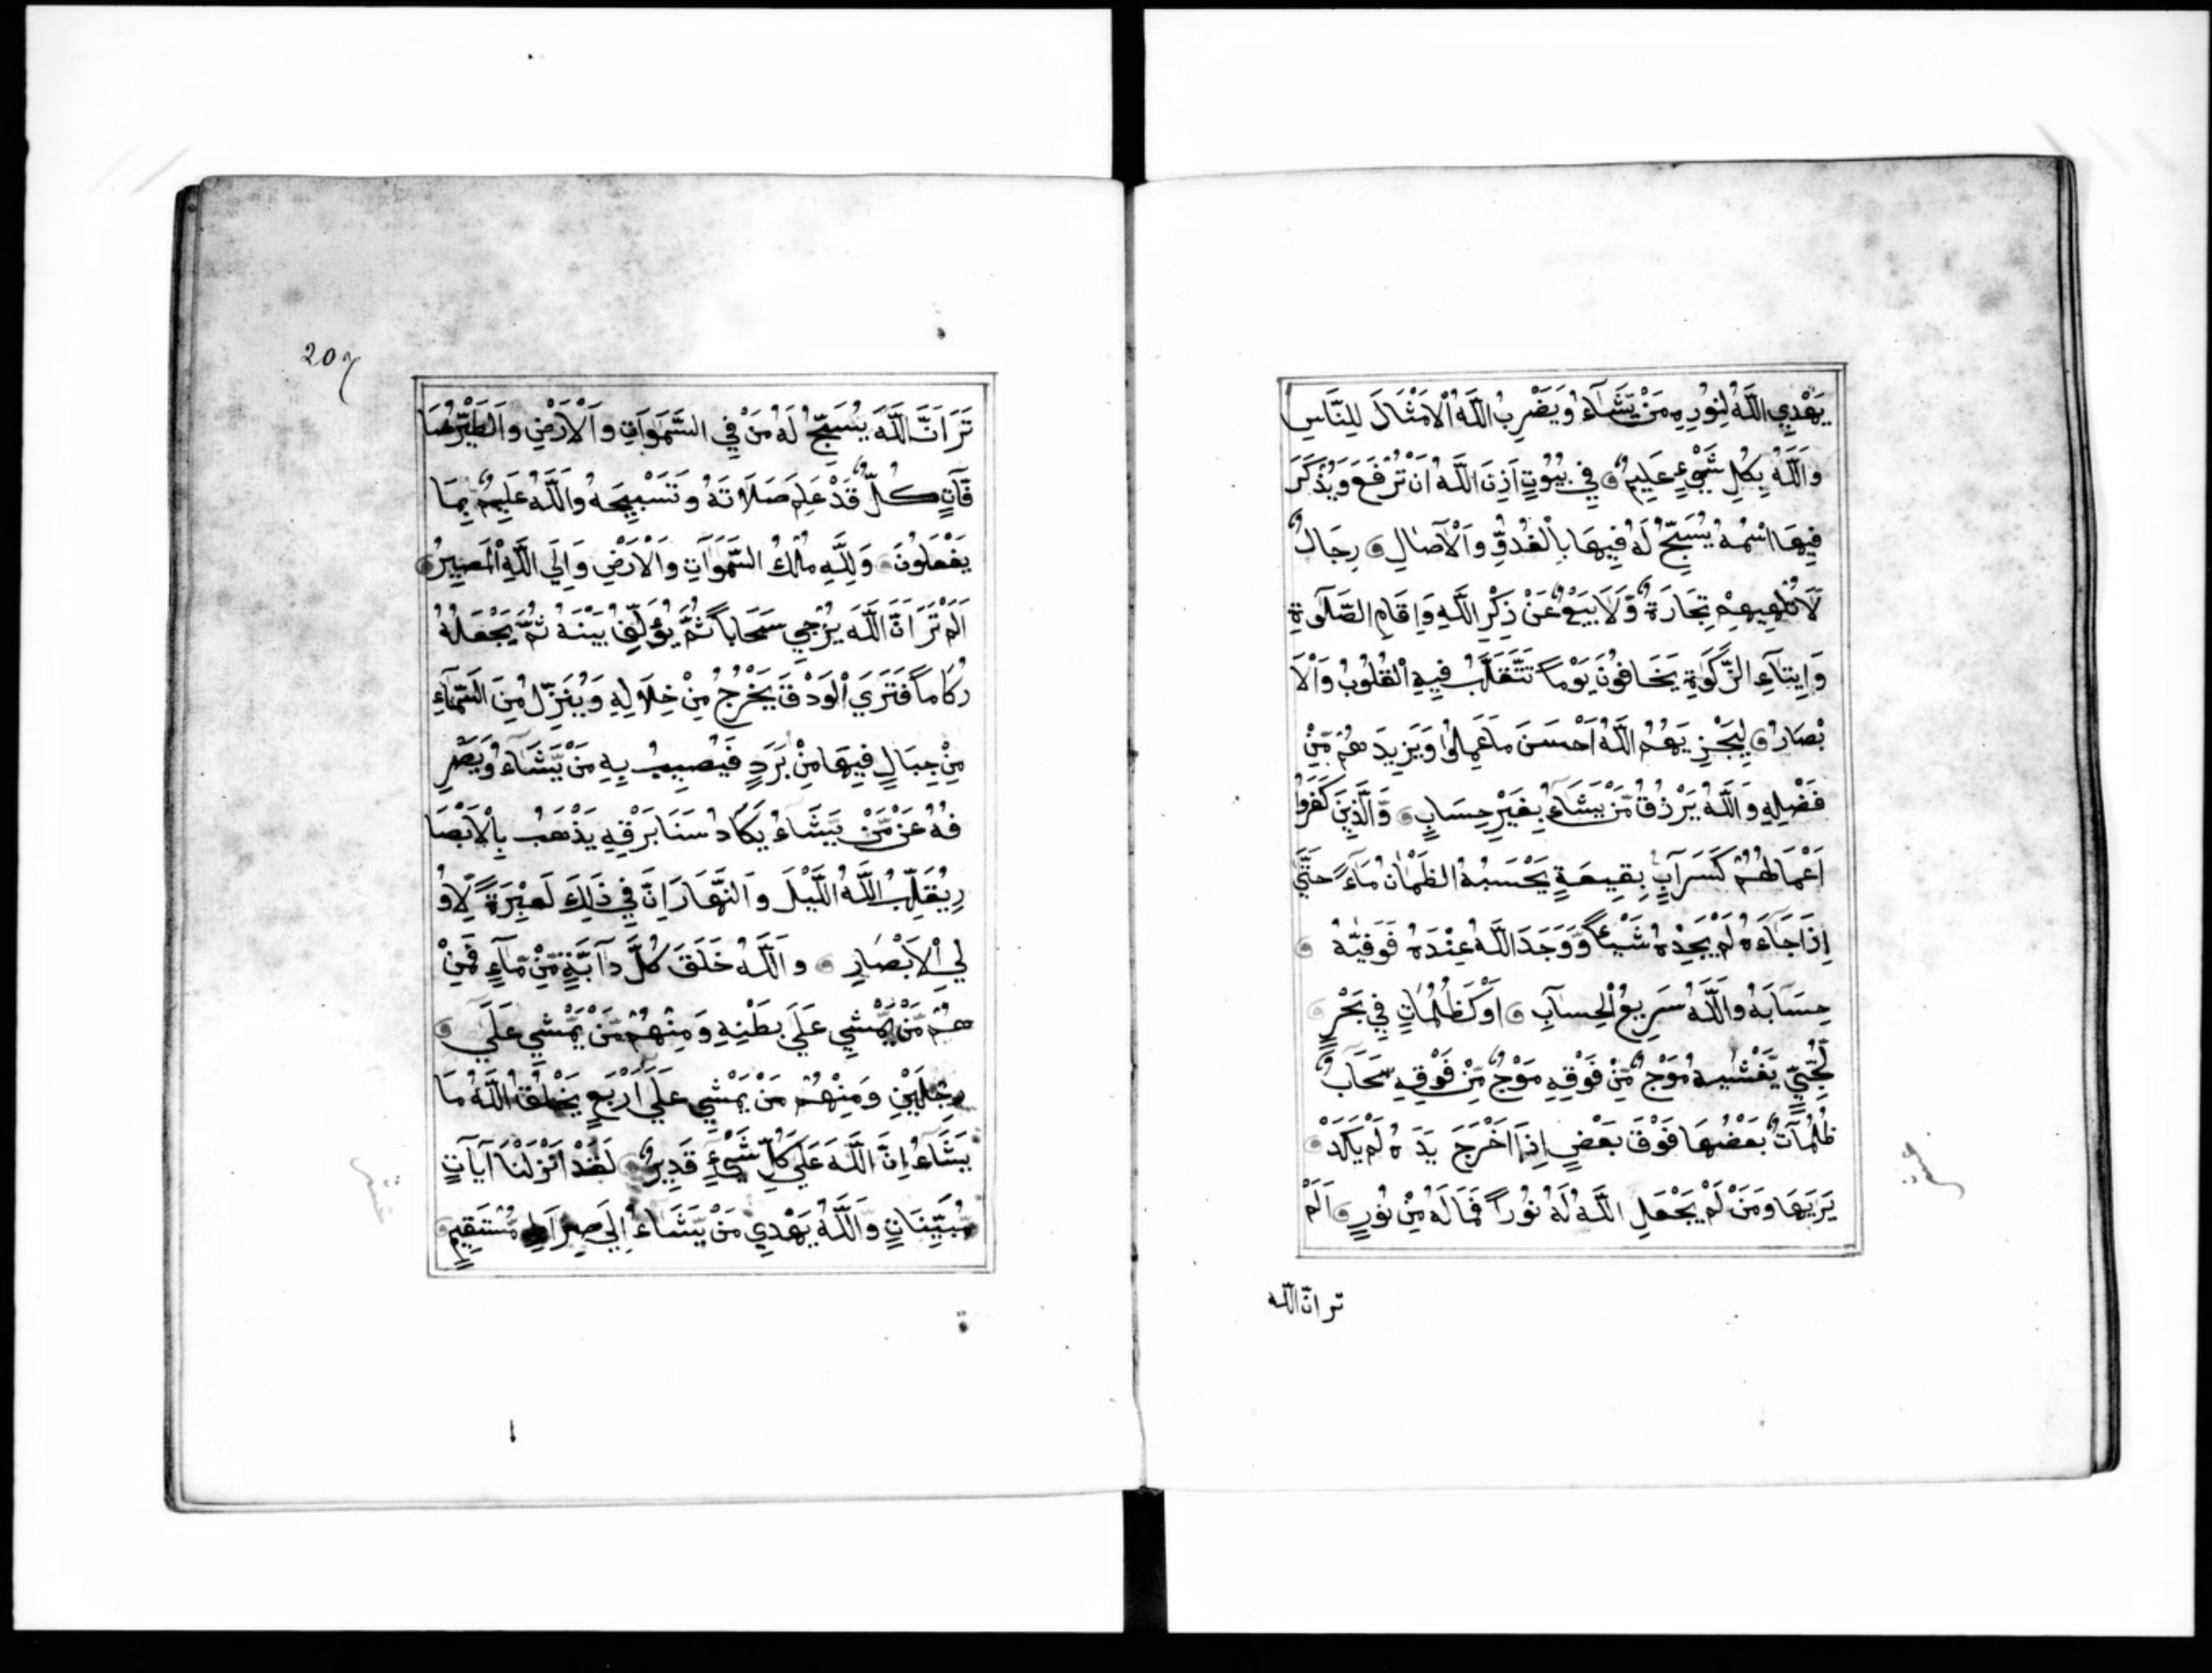 يَهْدِي اللَّهُ لِنُورِهِ مَنْ يَّشَآءُ وَيَضْرِبُ اللَّهُ الْاَمْثَالَ لِلنَّاسِ
وَاللَّهُ بِكُلِ شَيْءٍ عَلِيمٌ فِي بُيُوْتٍ اَذِنَ اللَّهُ اَنْ تُرْفَعَ وَيُذْكَرَ
فِيهَا اسْمُهُ يُسَبِّحُ لَهُ فِيهَا بِالْغُدُوِّ وَالْآصَالِ رِجَالٌ
لَا تُلْهِيهِمْ تِجَارَةٌ وَّلَا بَيْعٌ عَنْ ذِكْرِ اللَّهِ وَاِقَامِ الصَّلٰوةِ
وَاِيتَآءِ الزَّكَوٰةِ يَخَافُونَ يَوْماً تَتَقَلَّبُ فِيهِ الْقُلُوْبُ وَالْاَ
بْصَارُ لِيَجْزِيَهُمُ اللَّهُ اَحْسَنَ مَا عَمِلُوْا وَيَزِيدَهُمْ مِّنْ
فَضْلِهِ وَاللَّهُ يَرْزُقُ مَنْ يَّشَآءُ بِغَيْرِ حِسَابٍ وَالَّذِينَ كَفَرُوا
اَعْمَالُهُمْ كَسَرَابٍ بِقِيعَةٍ يَحْسَبُهُ الظَّمْاٰنُ مَآءً حَتَّىٰ
اِذَا جَآءَهُ لَمْ يَجِدْهُ شَيْئاً وَّوَجَدَ اللَّهَ عِنْدَهُ فَوَفّٰيهُ
حِسَابَهُ وَاللَّهُ سَرِيعُ الْحِسَابِ اَوْ كَظُلُمَاتٍ فِي بَحْرٍ
لُّجِّيٍّ يَّغْشٰيهُ مَوْجٌ مِّنْ فَوْقِهِ مَوْجٌ مِّنْ فَوْقِهِ سَحَابٌ
ظُلُمَاتٌ بَعْضُهَا فَوْقَ بَعْضٍ اِذَا اَخْرَجَ يَدَهُ لَمْ يَكَدْ
يَرٰيهَا وَمَنْ لَمْ يَجْعَلِ اللَّهُ لَهُ نُوْراً فَمَا لَهُ مِنْ نُوْرٍ اَلَمْ
تر انّ اللّه
207
تَرَ اَنَّ اللَّهَ يُسَبِّحُ لَهُ مَنْ فِي السَّمَوَاتِ وَالْاَرْضِ وَالطَّيْرُ صَا
فَّاتٍ كُلٌّ قَدْ عَلِمَ صَلَاتَهُ وَتَسْبِيحَهُ وَاللَّهُ عَلِيمٌ بِمَا
يَفْعَلُونَ وَلِلَّهِ مُلْكُ السَّمَوَاتِ وَالْاَرْضِ وَاِلَى اللَّهِ الْمَصِيرُ
اَلَمْ تَرَ اَنَّ اللَّهَ يُزْجِي سَحَاباً ثُمَّ يُؤَلِّفُ بَيْنَهُ ثُمَّ يَجْعَلُهُ
رُكَاماً فَتَرَي الْوَدْقَ يَخْرُجُ مِنْ خِلَالِهِ وَيُنَزِّلُ مِنَ السَّمَآءِ
مِنْ جِبَالٍ فِيهَا مِنْ بَرَدٍ فَيُصِيبُ بِهِ مَنْ يَّشَآءُ وَيَصْرِ
فُهُ عَنْ مَّنْ يَّشَآءُ يَكَادُ سَنَا بَرْقِهِ يَذْهَبُ بِالْاَبْصَا
رِ يُقَلِّبُ اللَّهُ اللَّيْلَ وَالنَّهَارَ اِنَّ فِي ذَلِكَ لَعِبْرَةً لِّاُو
لِي الْاَبْصَارِ وَاللَّهُ خَلَقَ كُلَّ دَآبَّةٍ مِّنْ مَّآءٍ فَمِنْ
هُمْ مَّنْ يَّمْشِي عَلَي بَطْنِهِ وَمِنْهُمْ مَّنْ يَّمْشِي عَلَي
رِجْلَيْنِ وَمِنْهُمْ مَنْ يَمْشِي عَلَي اَرْبَعٍ يَخْلُقُ اللَّهُ مَا
يَشَآءُ اِنَّ اللَّهَ عَلَي كُلِّ شَيْءٍ قَدِيرٌ لَقَدْ اَنْزَلْنَا آيَاتٍ
مُّبَيِّنَاتٍ وَّاللَّهُ يَهْدِي مَنْ يَّشَاءُ اِلَي صِرَاطٍ مُّسْتَقِيمٍ